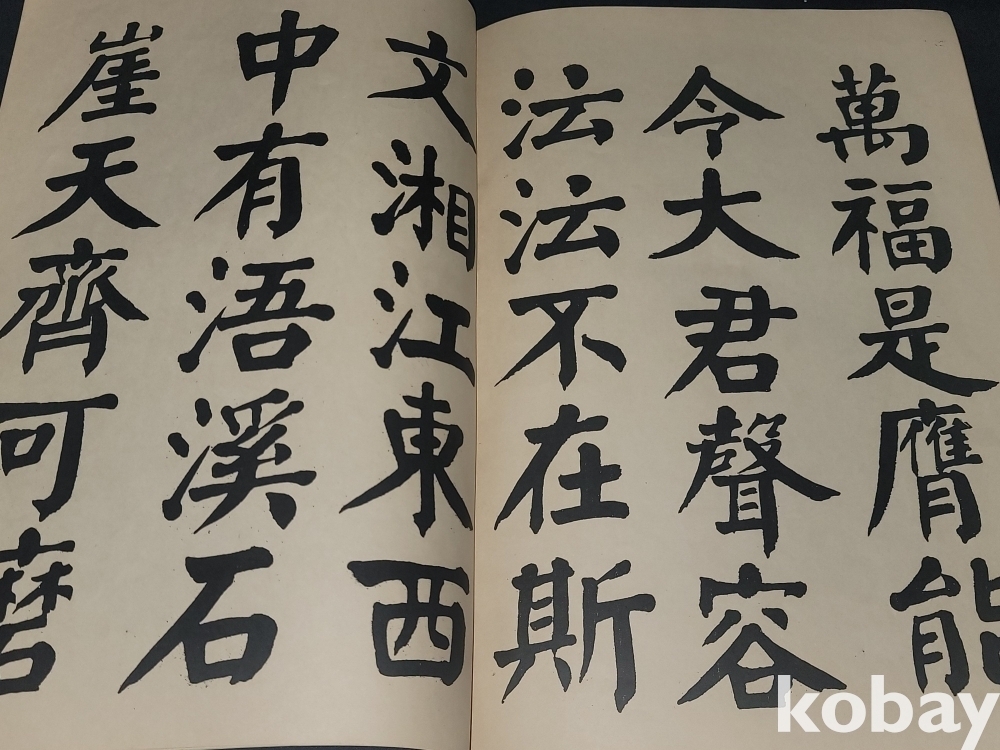 萬福是膺能
令大君聲容
沄沄不在斯
文湘江東西
中有浯溪石
崖天齊可磨
kobay